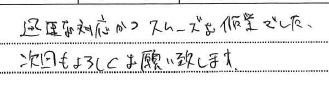 迅速な対応かつスムーズな作業でした、
次回もよろしくお願い致します。